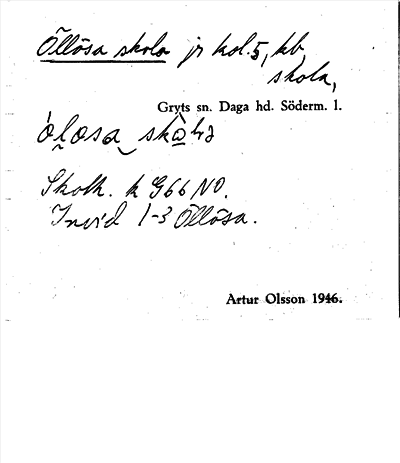 Öllösa skola jr kol. 5, kb,
skola,
Gryts sn. Daga hd. Söderm. l.
Skolh. k G66 NO.
Invid 1-3 Öllösa.
Artur Olsson 1946.